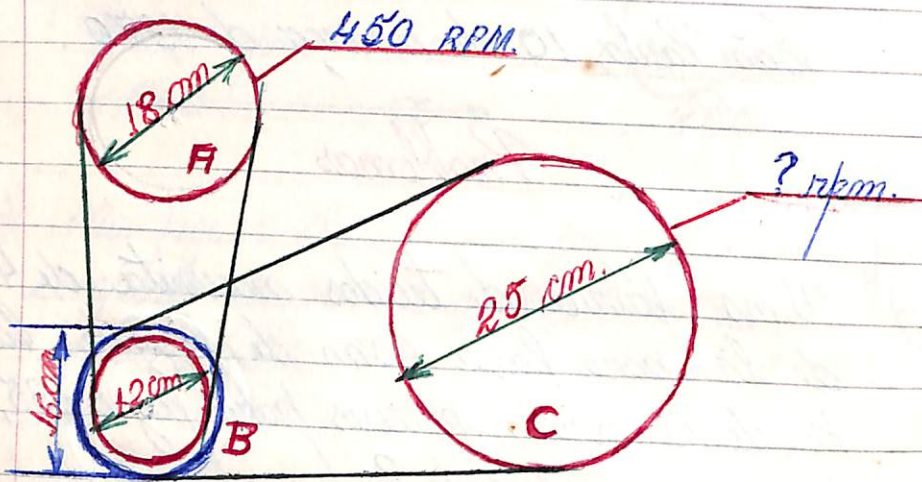 450 RPM.
18 cm
A
? rpm.
25 cm.
16 cm
12 cm
B
C